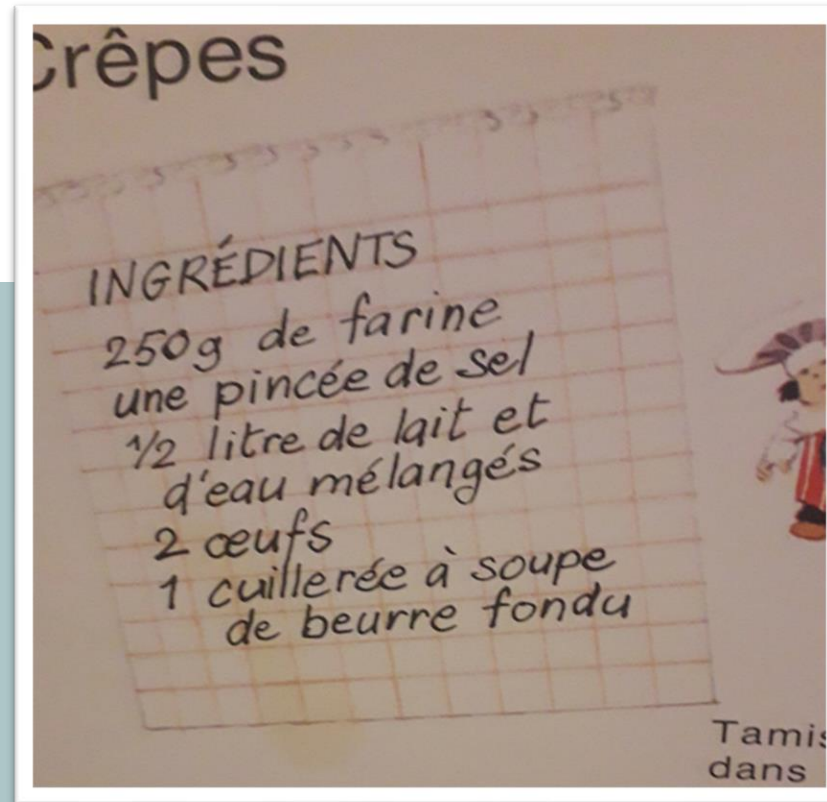 Crêpes
INGRÉDIENTS
250g de farine
une pincée de sel
1/2 litre de lait et
d'eau mélangés
2 œufs
1 cuillerée à soupe
de beurre fondu
dans